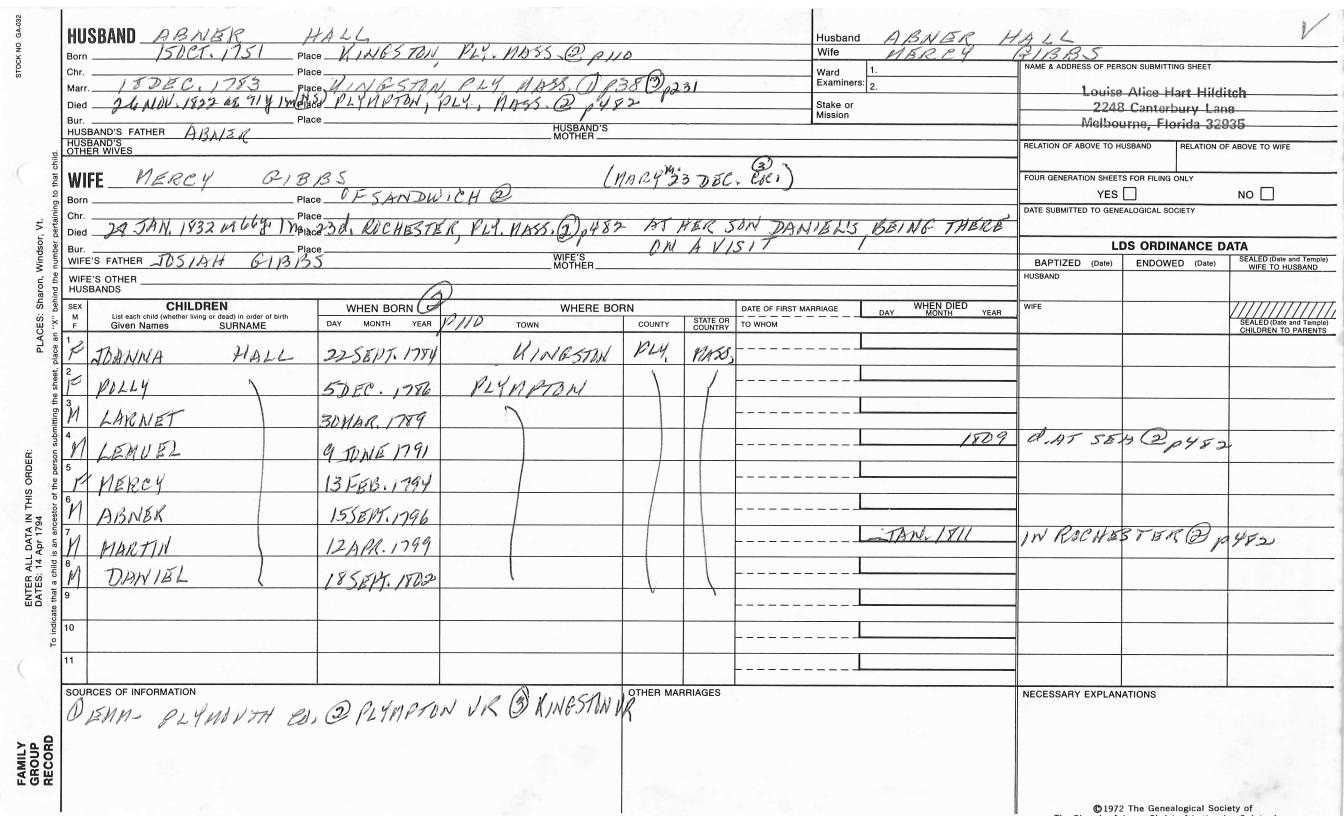 STOCK NO. GA-032
HUSBAND ABNER HALL
Born 15 OCT. 1751 Place KINGSTON, PLY. MASS. ② p110
Chr. Place
Marr. 18 DEC. 1783 Place KINGSTON PLY MASS. ① p38 ③ p231
Died 26 NOV. 1822 Place PLYMPTON, PLY., MASS. ② p482
Bur. Place
HUSBAND'S FATHER ABNER HUSBAND'S MOTHER
HUSBAND'S OTHER WIVES
WIFE MERCY GIBBS (MARY 23 DEC. ③)
Born Place OF SANDWICH ②
Chr. Place
Died JAN. 1832 Place 23d. ROCHESTER, PLY. MASS. ② p482 AT HER SON DANIEL'S, BEING THERE
Bur. Place ON A VISIT
WIFE'S FATHER JOSIAH GIBBS WIFE'S MOTHER
WIFE'S OTHER HUSBANDS
Husband ABNER HALL
Wife MERCY GIBBS
Ward Examiners: 1.
2.
Stake or Mission
NAME & ADDRESS OF PERSON SUBMITTING SHEET
Louise Alice Hart Hilditch
2248 Canterbury Lane
Melbourne, Florida 32935
RELATION OF ABOVE TO HUSBAND RELATION OF ABOVE TO WIFE
FOUR GENERATION SHEETS FOR FILING ONLY
YES NO
DATE SUBMITTED TO GENEALOGICAL SOCIETY
LDS ORDINANCE DATA
BAPTIZED (Date) ENDOWED (Date) SEALED (Date and Temple) WIFE TO HUSBAND
HUSBAND
WIFE
SEALED (Date and Temple) CHILDREN TO PARENTS
SEX M F
CHILDREN
List each child (whether living or dead) in order of birth
Given Names SURNAME
WHEN BORN ② p110
DAY MONTH YEAR
WHERE BORN
TOWN COUNTY STATE OR COUNTRY
DATE OF FIRST MARRIAGE
TO WHOM
WHEN DIED
DAY MONTH YEAR
1 F JOANNA HALL 22 SEPT. 1784 KINGSTON PLY. MASS.
2 F POLLY 5 DEC. 1786 PLYMPTON
3 M LARNET 30 MAR. 1789
4 M LEMUEL 9 JUNE 1791 1809 d. AT SEA ② p482
5 F MERCY 13 FEB. 1794
6 M ABNER 15 SEPT. 1796
7 M MARTIN 12 APR. 1799 JAN. 1811 IN ROCHESTER ② p482
8 M DANIEL 18 SEPT. 1802
9
10
11
SOURCES OF INFORMATION
① PLYMOUTH CO. ② PLYMPTON VR ③ KINGSTON VR
OTHER MARRIAGES
NECESSARY EXPLANATIONS
©1972 The Genealogical Society of
ENTER ALL DATA IN THIS ORDER:
DATES: 14 Apr 1794 PLACES: Sharon, Windsor, Vt.
To indicate that a child is an ancestor of the person submitting the sheet, place an "X" behind the number pertaining to that child.
FAMILY GROUP RECORD